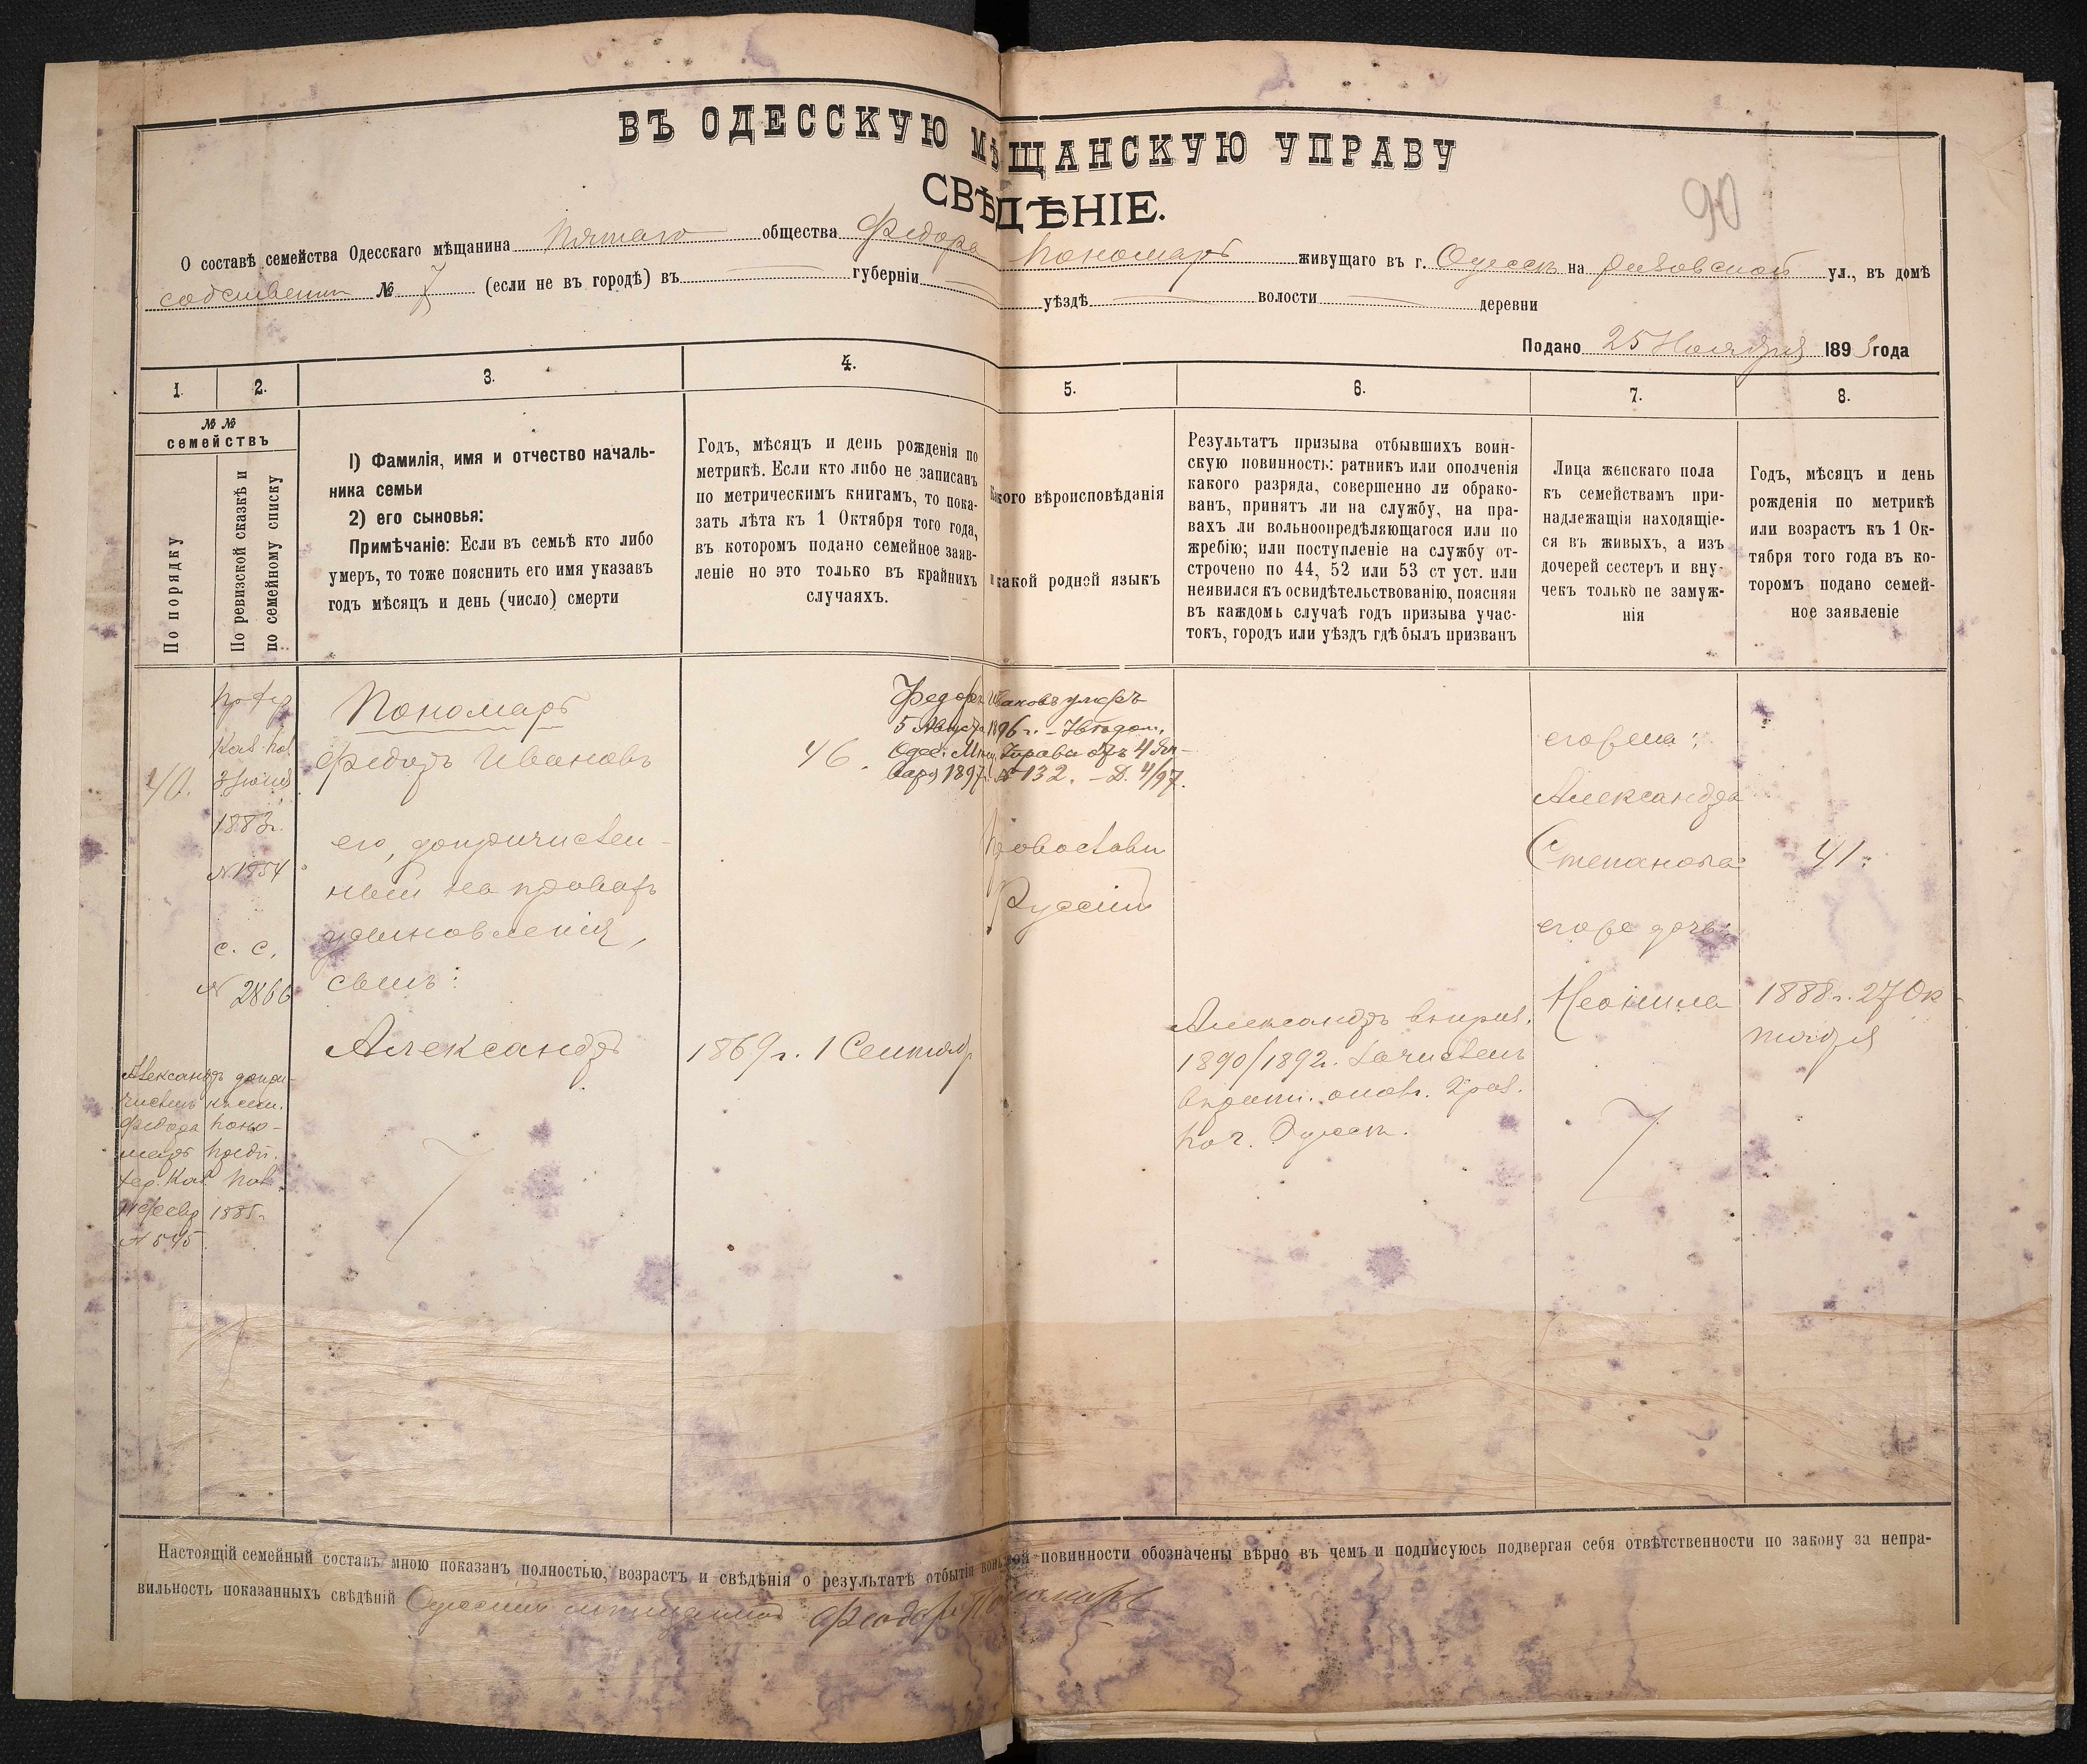 ВЪ ОДЕССКУЮ МѢЩАНСКУЮ УПРАВУ
СВѢДѢНІЕ.
90
О составѣ семейства Одесскаго мѣщанина Пятаго общества Федора Пономарь живущаго въ г. Одессѣ на ул., въ домѣ
собствен № 7 (если не въ городѣ) въ губерніи уѣздѣ волости деревни
Подано 25 Ноября 1893 года
1.
2.
3.
4.
5.
6.
7.
8.
№ №
семействъ
По порядку
По ревизской сказкѣ и
по семейному списку
1) Фамилія, имя и отчество началь-
ника семьи
2) его сыновья:
Примѣчаніе: Если въ семьѣ кто либо
умеръ, то тоже пояснить его имя указавъ
годъ мѣсяцъ и день (число) смерти
Годъ, мѣсяцъ и день рожденія по
метрикѣ. Если кто либо не записанъ
по метрическимъ книгамъ, то пока-
зать лѣта къ 1 Октября того года,
въ которомъ подано семейное заяв-
леніе но это только въ крайнихъ
случаяхъ.
Какого вѣроисповѣданія
и какой родной языкъ
Результатъ призыва отбывшихъ воин-
скую повинность: ратникъ или ополченія
какого разряда, совершенно ли обрако-
ванъ, принятъ ли на службу, на пра-
вахъ ли вольноопредѣляющагося или по
жребію; или поступленіе на службу от-
строчено по 44, 52 или 53 ст уст. или
неявился къ освидѣтельствованію, поясняя
въ каждомъ случаѣ годъ призыва учас-
токъ, городъ или уѣздъ гдѣ былъ призванъ
Лица женскаго пола
къ семействамъ при-
надлежащія находящіе-
ся въ живыхъ, а изъ
дочерей сестеръ и вну-
чекъ только не замуж-
нія
Годъ, мѣсяцъ и день
рожденія по метрикѣ
или возрастъ къ 1 Ок-
тября того года въ ко-
торомъ подано семей-
ное заявленіе
40.
Каз. Пал.
3 Іюня
1883г.
№ 1954
с. с.
№ 2866
Пономарь
Федоръ Ивановъ
его, допричислен-
ный на правахъ
усыновленія,
сынъ:
Александръ
46.
1869 г. 1 Сентяб
Федоръ Ивановъ умеръ
5 Августа 1896 г. – Увѣдом.
Одес. Мѣщ. Управы отъ 4 Ян-
варя 1897 г. № 132. – Д. 4/97.
Православн
Русскій
Александръ
1890/1892г. зачисленъ
въ ополч.
Одесск.
его жена:
Александра
Степанова
41.
его же дочь:
Неонила
1888 г. 27 Ок-
тября
Александръ допри-
численъ къ сем.
Федора Поно-
марь предп.
Хер. Каз. Пал.
Февр 1885г.
№ 545
Настоящій семейный составъ мною показанъ полностью, возрастъ и свѣдѣнія о результатѣ отбытія воинской повинности обозначены вѣрно въ чемъ и подписуюсь подвергая себя отвѣтственности по закону за непра-
вильность показанныхъ свѣдѣній Одесскій мѣщанинъ Феодоръ Пономарь